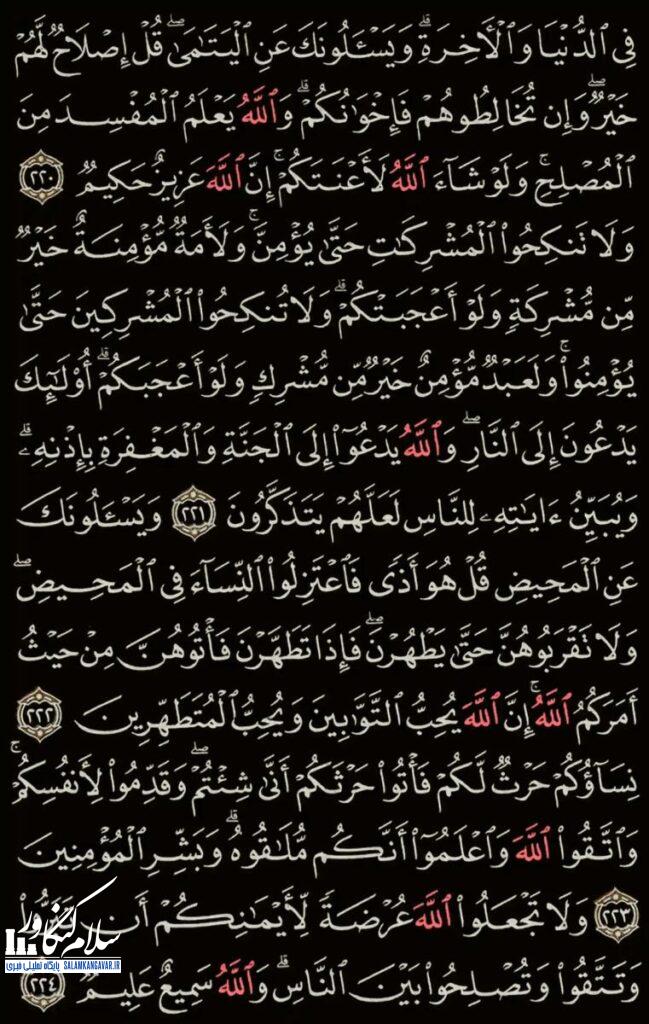 فِى ٱلدُّنْيَا وَٱلْـَٔاخِرَةِ ۗ وَيَسْـَٔلُونَكَ عَنِ ٱلْيَتَـٰمَىٰ ۖ قُلْ إِصْلَاحٌ لَّهُمْ
خَيْرٌ ۖ وَإِن تُخَالِطُوهُمْ فَإِخْوَٰنُكُمْ ۚ وَٱللَّهُ يَعْلَمُ ٱلْمُفْسِدَ مِنَ
ٱلْمُصْلِحِ ۚ وَلَوْ شَآءَ ٱللَّهُ لَأَعْنَتَكُمْ ۚ إِنَّ ٱللَّهَ عَزِيزٌ حَكِيمٌ ٢٢٠
وَلَا تَنكِحُوا۟ ٱلْمُشْرِكَـٰتِ حَتَّىٰ يُؤْمِنَّ ۚ وَلَأَمَةٌ مُّؤْمِنَةٌ خَيْرٌ
مِّن مُّشْرِكَةٍ وَلَوْ أَعْجَبَتْكُمْ ۗ وَلَا تُنكِحُوا۟ ٱلْمُشْرِكِينَ حَتَّىٰ
يُؤْمِنُوا۟ ۚ وَلَعَبْدٌ مُّؤْمِنٌ خَيْرٌ مِّن مُّشْرِكٍ وَلَوْ أَعْجَبَكُمْ ۗ أُو۟لَـٰٓئِكَ
يَدْعُونَ إِلَى ٱلنَّارِ ۖ وَٱللَّهُ يَدْعُوٓا۟ إِلَى ٱلْجَنَّةِ وَٱلْمَغْفِرَةِ بِإِذْنِهِۦ ۖ
وَيُبَيِّنُ ءَايَـٰتِهِۦ لِلنَّاسِ لَعَلَّهُمْ يَتَذَكَّرُونَ ٢٢١ وَيَسْـَٔلُونَكَ
عَنِ ٱلْمَحِيضِ ۖ قُلْ هُوَ أَذًى فَٱعْتَزِلُوا۟ ٱلنِّسَآءَ فِى ٱلْمَحِيضِ ۖ
وَلَا تَقْرَبُوهُنَّ حَتَّىٰ يَطْهُرْنَ ۖ فَإِذَا تَطَهَّرْنَ فَأْتُوهُنَّ مِنْ حَيْثُ
أَمَرَكُمُ ٱللَّهُ ۚ إِنَّ ٱللَّهَ يُحِبُّ ٱلتَّوَّٰبِينَ وَيُحِبُّ ٱلْمُتَطَهِّرِينَ ٢٢٢
نِسَآؤُكُمْ حَرْثٌ لَّكُمْ فَأْتُوا۟ حَرْثَكُمْ أَنَّىٰ شِئْتُمْ ۖ وَقَدِّمُوا۟ لِأَنفُسِكُمْ ۚ
وَٱتَّقُوا۟ ٱللَّهَ وَٱعْلَمُوٓا۟ أَنَّكُم مُّلَـٰقُوهُ ۗ وَبَشِّرِ ٱلْمُؤْمِنِينَ
٢٢٣ وَلَا تَجْعَلُوا۟ ٱللَّهَ عُرْضَةً لِّأَيْمَـٰنِكُمْ أَن تَبَرُّوا۟
وَتَتَّقُوا۟ وَتُصْلِحُوا۟ بَيْنَ ٱلنَّاسِ ۗ وَٱللَّهُ سَمِيعٌ عَلِيمٌ ٢٢٤
سلام کنگاور
پایگاه تحلیلی خبری SALAMKANGAVAR.IR